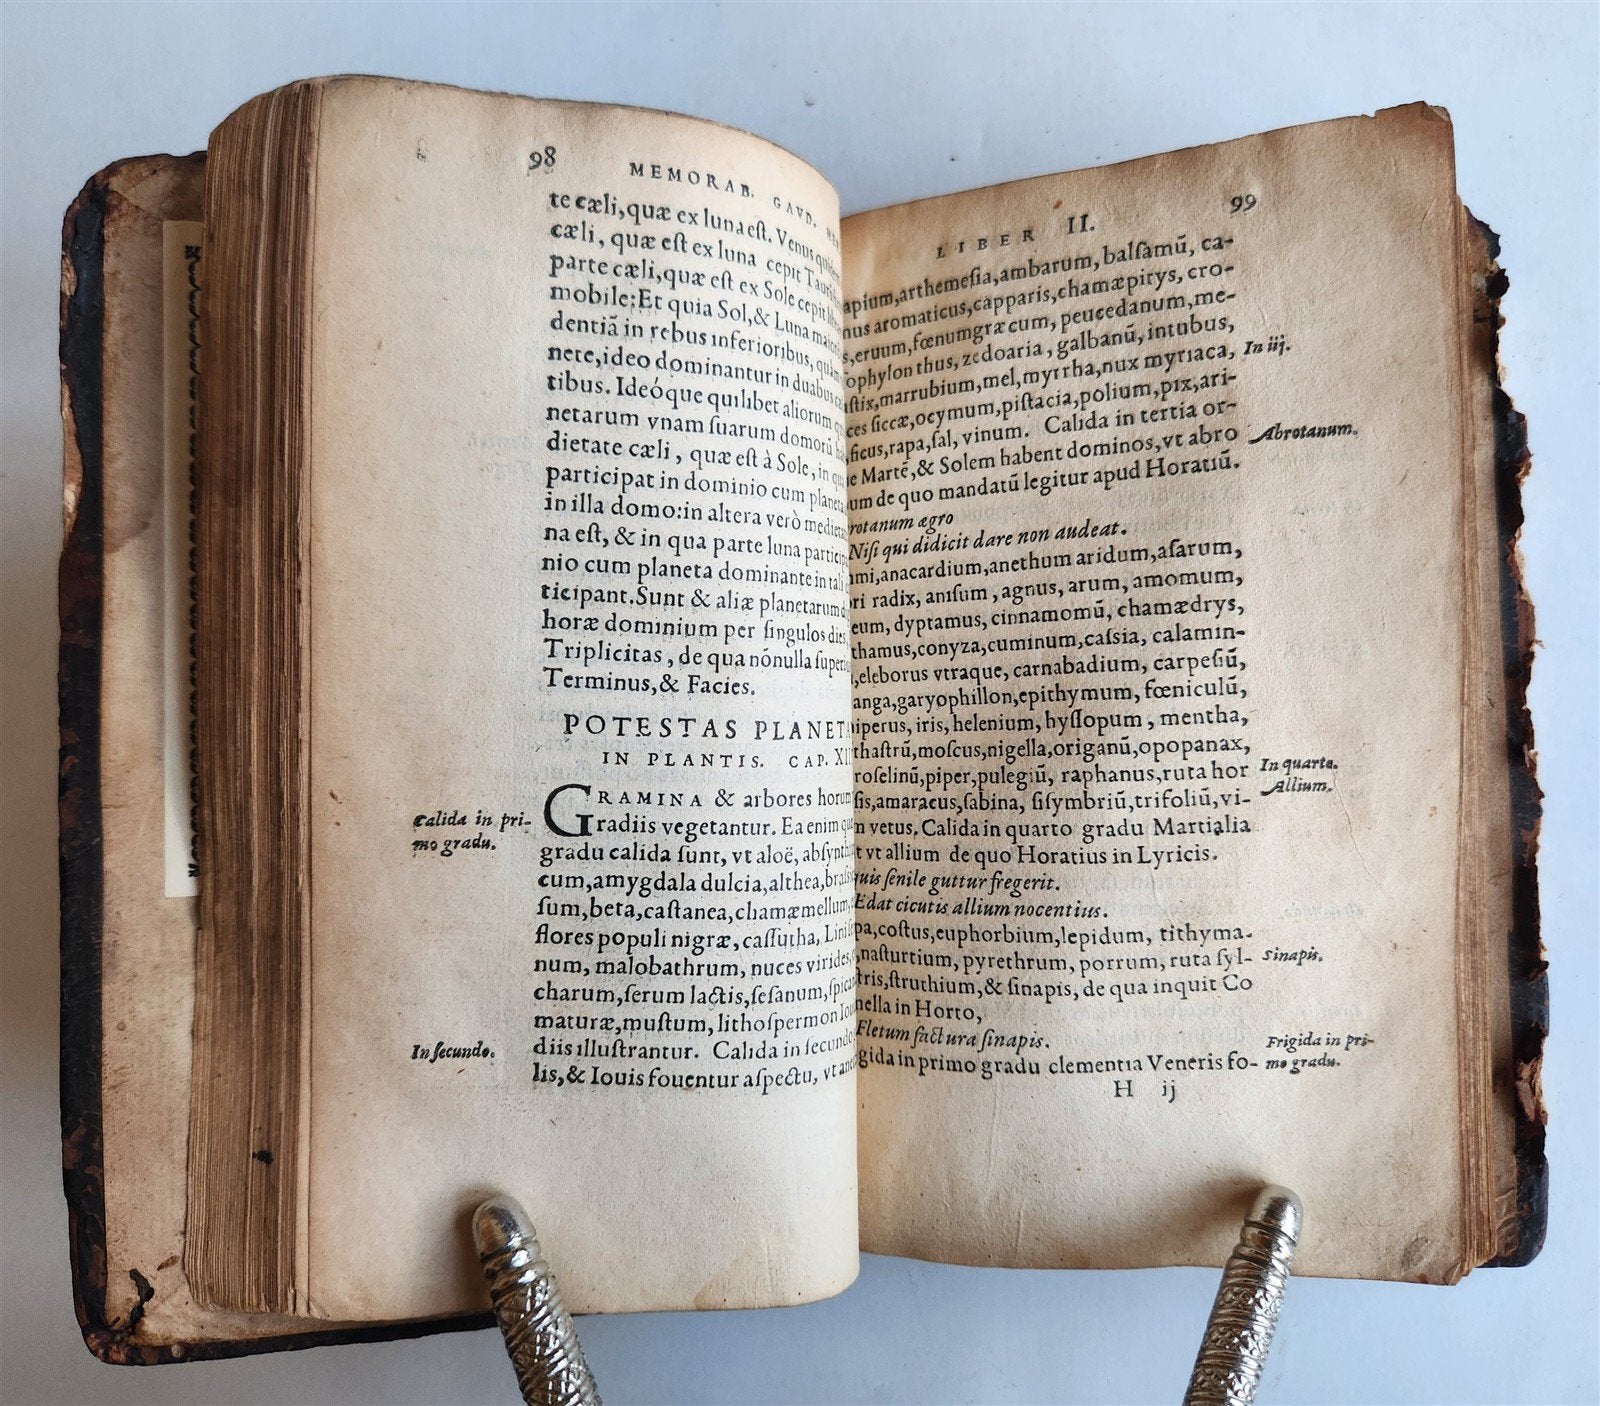 98
MEMORAB. GAVD.
te cæli, quæ ex luna est. Venus
cæli, quæ est ex luna cepit
parte cæli, quæ est ex Sole cepit
mobile: Et quia Sol, & Luna
dentiã in rebus inferioribus,
nete, ideo dominantur in duabus
tibus. Ideóque quilibet aliorum
netarum vnam suarum domorũ
dietate cæli, quæ est à Sole, in
participat in dominio cum
in illa domo: in altera verò
na est, & in qua parte luna
nio cum planeta dominante in
ticipant. Sunt & aliæ planetarum
horæ dominium per singulos dies
Triplicitas, de qua nõnulla
Terminus, & Facies.
POTESTAS
IN PLANTIS. CAP.
GRAMINA & arbores horum
Calida in pri-
radiis vegetantur. Ea enim
mo gradu.
gradu calida sunt, vt aloë,
cum, amygdala dulcia, althea,
sum, beta, castanea, chamæmellum,
flores populi nigræ, cassutha,
num, malobathrum, nuces virides,
charum, serum lactis, sesanum,
maturæ, mustum, lithospermon
In secundo.
diis illustrantur. Calida in secundo
lis, & Iouis fouentur aspectu, vt
LIBER II.
99
apium, arthemesia, ambarum, balsamũ, ca-
nus aromaticus, capparis, chamæpirys, cro-
eruum, fœnumgræcum, peucedanum, me-
ophylon thus, zedoaria, galbanũ, intubus,
In iij.
stix, marrubium, mel, myrrha, nux myriaca,
ces siccæ, ocymum, pistacia, polium, pix, ari-
ficus, rapa, sal, vinum. Calida in tertia or-
Abrotanum.
e Martẽ, & Solem habent dominos, vt abro
um de quo mandatũ legitur apud Horatiũ.
rotanum ægro
Nisi qui didicit dare non audeat.
mi, anacardium, anethum aridum, asarum,
ri radix, anisum, agnus, arum, amomum,
eum, dyptamus, cinnamomũ, chamædrys,
thamus, conyza, cuminum, cassia, calamin-
eleborus vtraque, carnabadium, carpesiũ,
anga, garyophillon, epithymum, fœniculũ,
iperus, iris, helenium, hyssopum, mentha,
thastrũ, moscus, nigella, origanũ, opopanax,
In quarto.
roselinũ, piper, pulegiũ, raphanus, ruta hor
Allium.
sis, amaracus, sabina, sisymbriũ, trifoliũ, vi-
m vetus. Calida in quarto gradu Martialia
t vt allium de quo Horatius in Lyricis.
quis senile guttur fregerit.
Edat cicutis allium nocentius.
pa, costus, euphorbium, lepidum, tithyma-
Sinapis.
nasturtium, pyrethrum, porrum, ruta syl-
tris, struthium, & sinapis, de qua inquit Co
nella in Horto,
Fletum factura sinapis.
Frigida in pri-
gida in primo gradu clementia Veneris fo-
mo gradu.
H ij